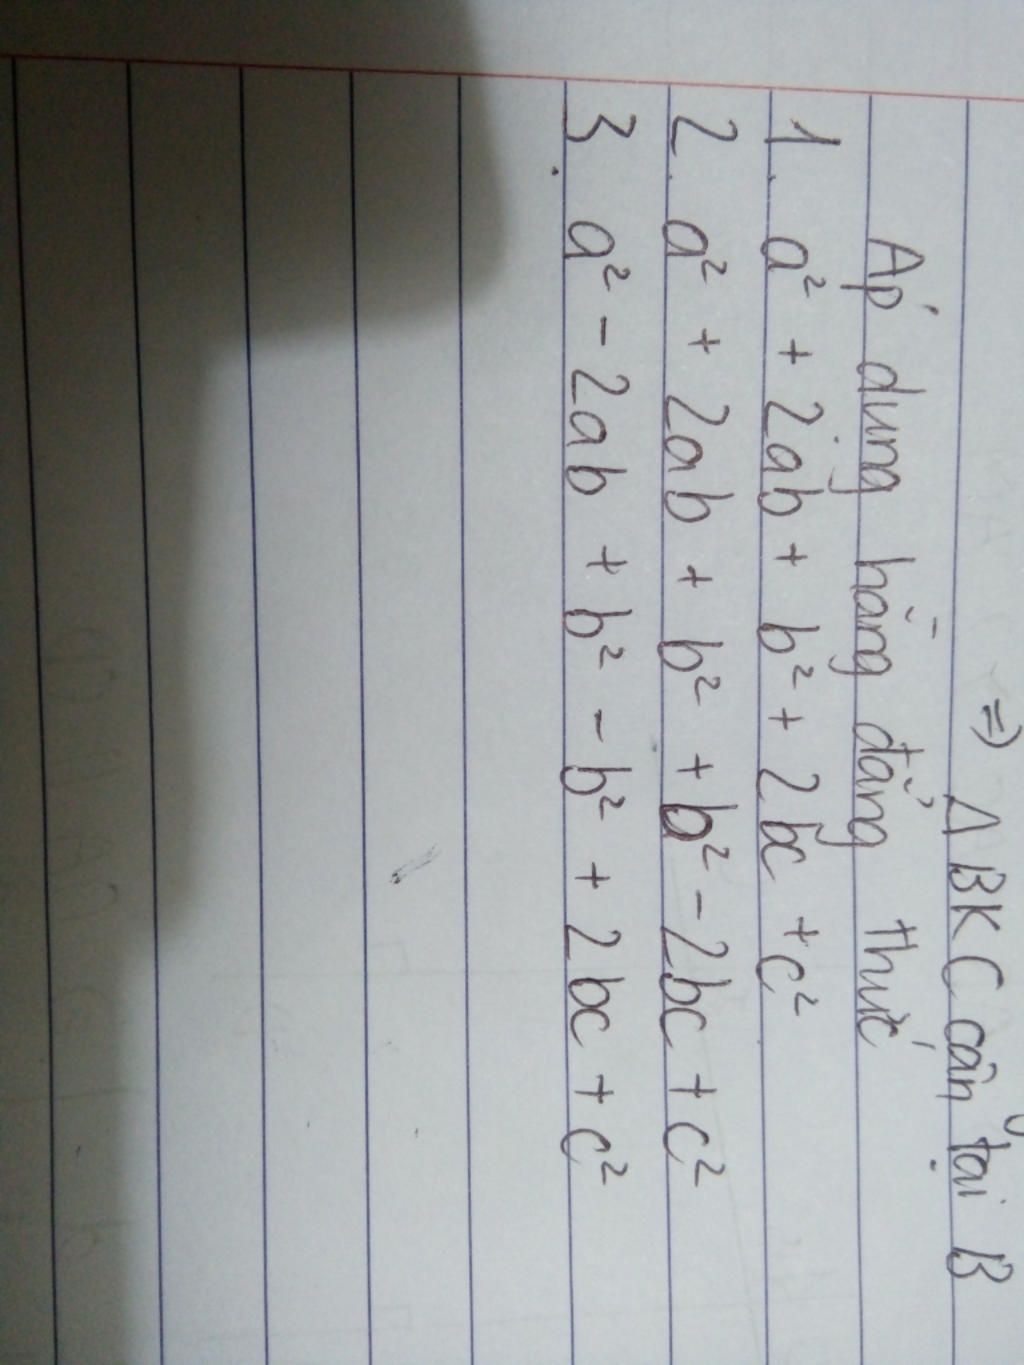 => Δ BKC cân tại B
Áp dụng hằng đẳng thức
1. a² + 2ab + b² + 2bc + c²
2. a² + 2ab + b² + b² - 2bc + c²
3. a² - 2ab + b² - b² + 2bc + c²